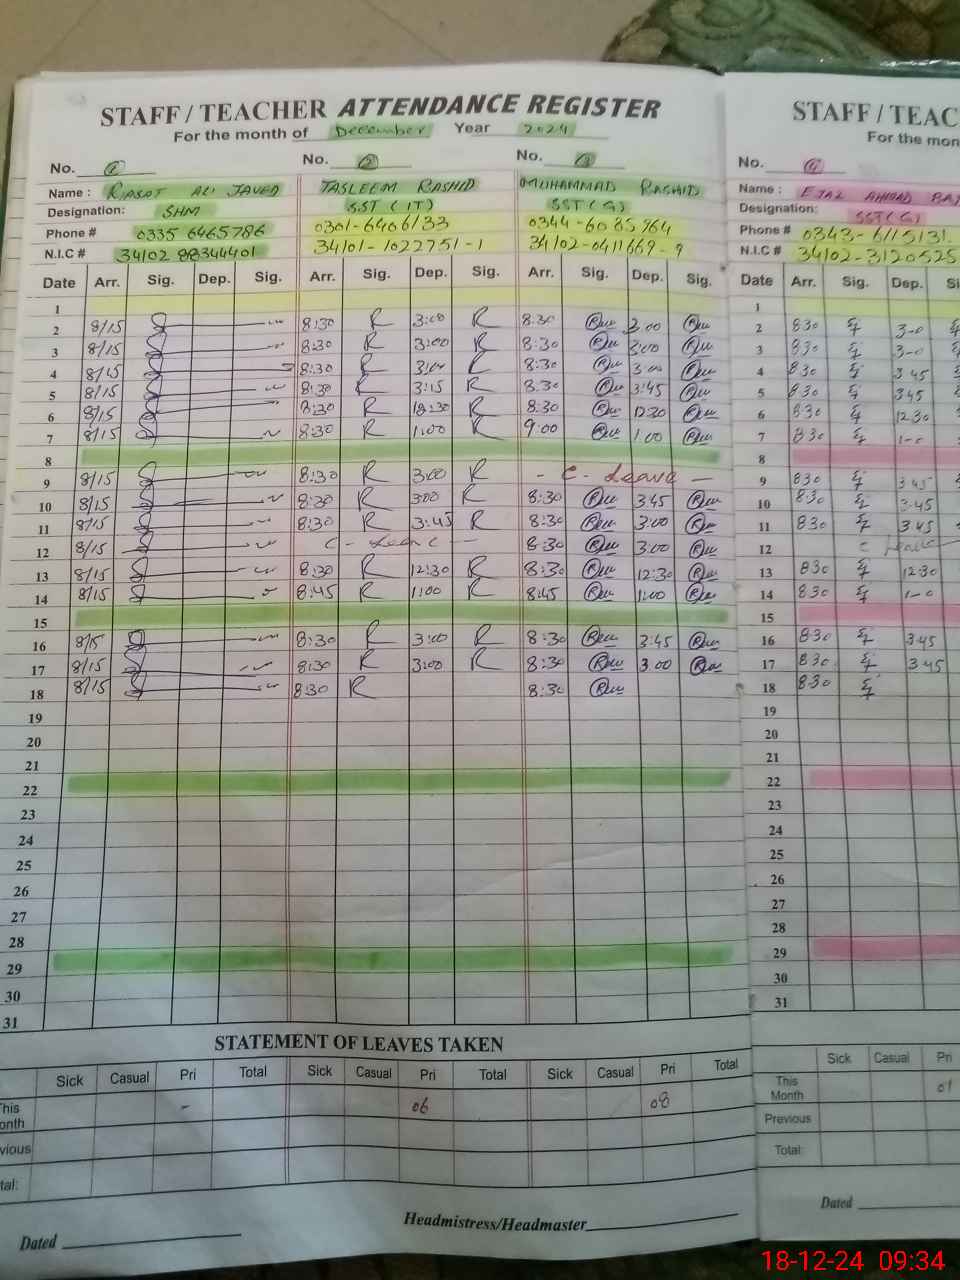 STAFF / TEACHER ATTENDANCE REGISTER
For the month of December Year 2024
No. 1 No. 2 No. 3
Name : RASAT ALI JAVED TASLEEM RASHID MUHAMMAD RASHID
Designation: SHM SST (IT) SST (G)
Phone # 0335 6465786 0301-6406133 0344-6085764
N.I.C # 34102 98344401 34101-1022751-1 34102-0411669-9
Date Arr. Sig. Dep. Sig. Arr. Sig. Dep. Sig. Arr. Sig. Dep. Sig.
1
2 8/15 8:30 R 3:00 R 8:30 3:00
3 8/15 8:30 R 3:00 R 8:30 3:00
4 8/15 8:30 R 3:00 8:30 3:00
5 8/15 8:30 R 3:15 R 8:30 3:45
6 8/15 8:30 R 12:30 R 8:30 12:30
7 8/15 8:30 R 1:00 R 9:00 1:00
8
9 8/15 8:30 R 3:00 R - C - Leave -
10 8/15 8:30 R 3:00 R 8:30 3:45
11 8/15 8:30 R 3:45 R 8:30 3:00
12 8/15 C - Leave - 8:30 3:00
13 8/15 8:30 R 12:30 R 8:30 12:30
14 8/15 8:45 R 1:00 R 8:45 1:00
15
16 8/15 8:30 R 3:00 R 8:30 3:45
17 8/15 8:30 R 3:00 R 8:30 3:00
18 8/15 8:30 R 8:30
19
20
21
22
23
24
25
26
27
28
29
30
31
STATEMENT OF LEAVES TAKEN
Sick Casual Pri Total Sick Casual Pri Total Sick Casual Pri Total
This Month - 06 08
Previous
Total:
Dated
Headmistress/Headmaster
STAFF / TEAC
For the mon
No. 4
Name : EJAZ AHMAD
Designation: SST (G)
Phone # 0343-6115131
N.I.C # 34102-3120525
Date Arr. Sig. Dep. Si
1
2 8:30 3-0
3 8:30 3-0
4 8:30 3:45
5 8:30 3:45
6 8:30 12:30
7 8:30 1-0
8
9 8:30 3:45
10 8:30 3:45
11 8:30 3:45
12 C Leave
13 8:30 12:30
14 8:30 1-0
15
16 8:30 3:45
17 8:30 3:45
18 8:30
19
20
21
22
23
24
25
26
27
28
29
30
31
Sick Casual Pri
This Month 01
Previous
Total:
Dated
18-12-24 09:34